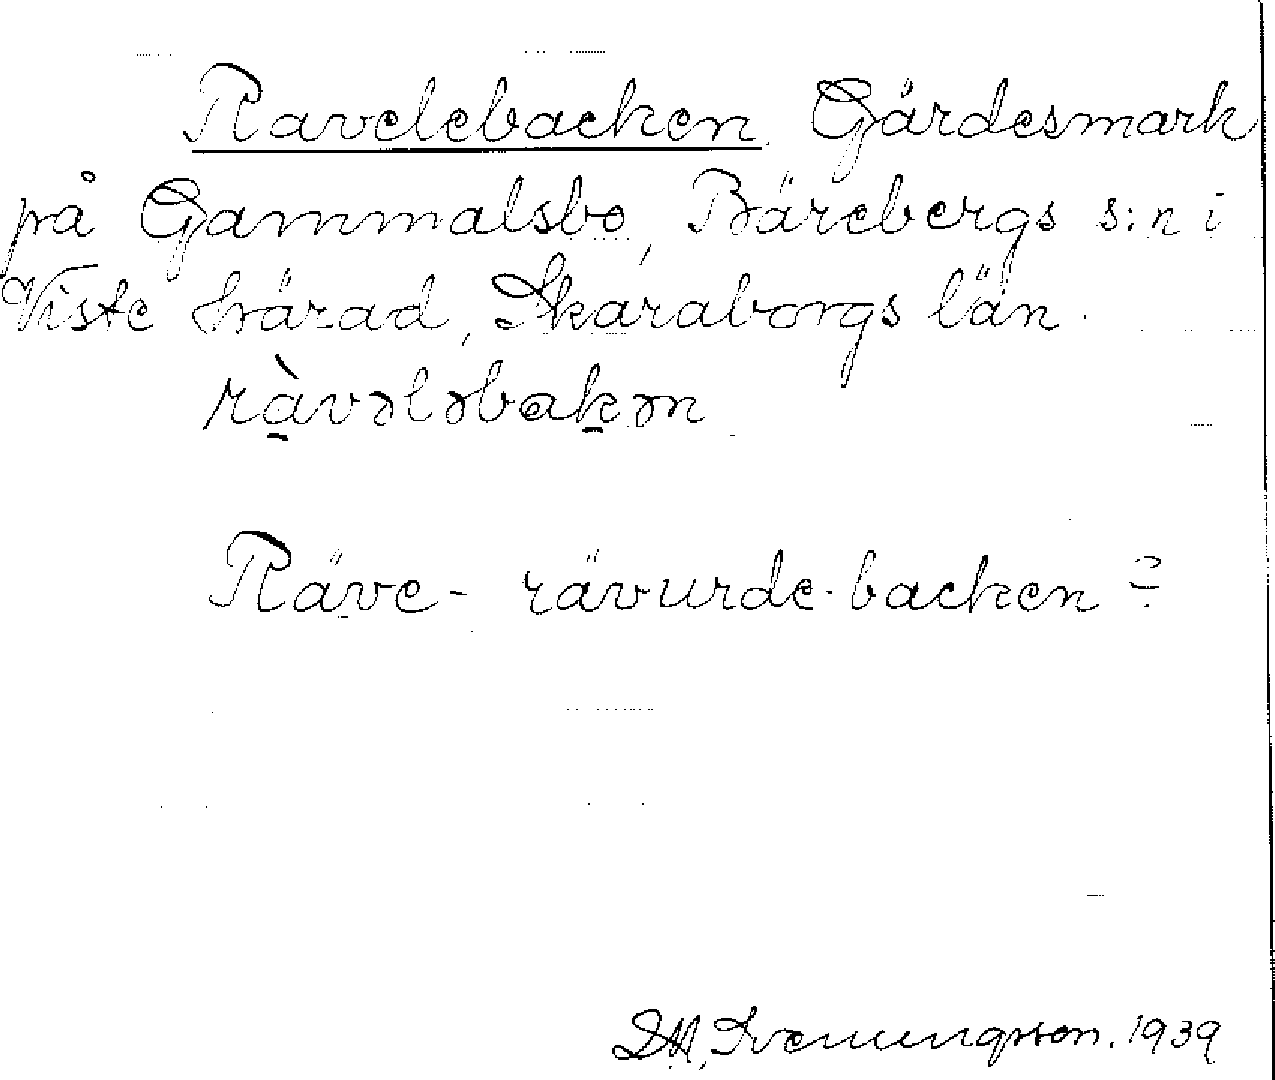 Ravelebacken Gärdesmark
på Gammalsbo, Bärebergs s:n i
Viste härad, Skaraborgs län.
ràvələbakən
Räve- rävurde-backen?
1939